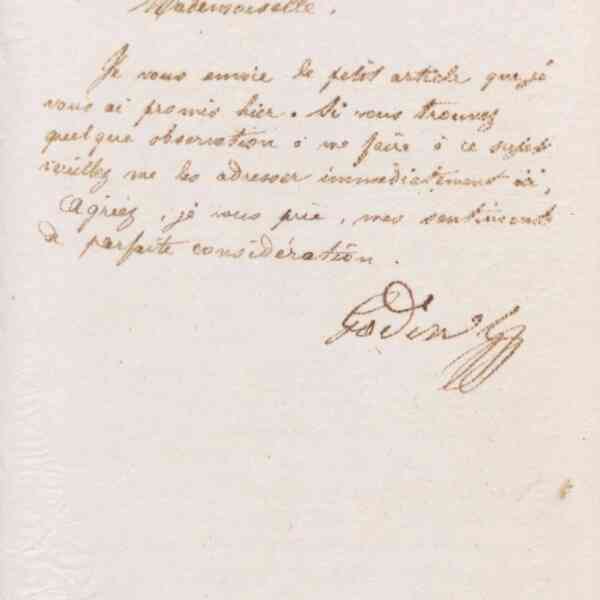 Mademoiselle.
Je vous envoie le petit article que je
vous ai promis hier. Si vous trouvez
quelque observation à me faire à ce sujet
veuillez me les adresser immédiatement ici,
Agréez, je vous prie, mes sentiments
de parfaite considération.
Godin